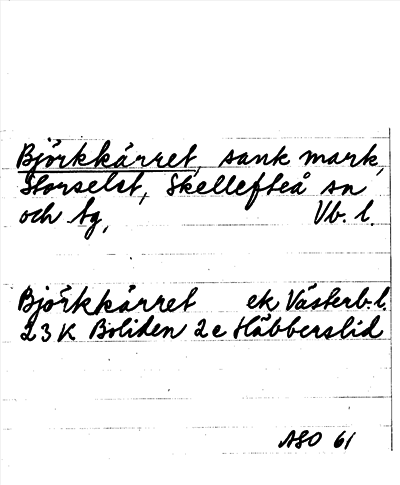 Björkkärret, sank mark,
Storselet, Skellefteå sn
och tg, Vb. l.
Björkkärret ek Västerb. l.
23 K Boliden 2e Häbberslid
ASO 61